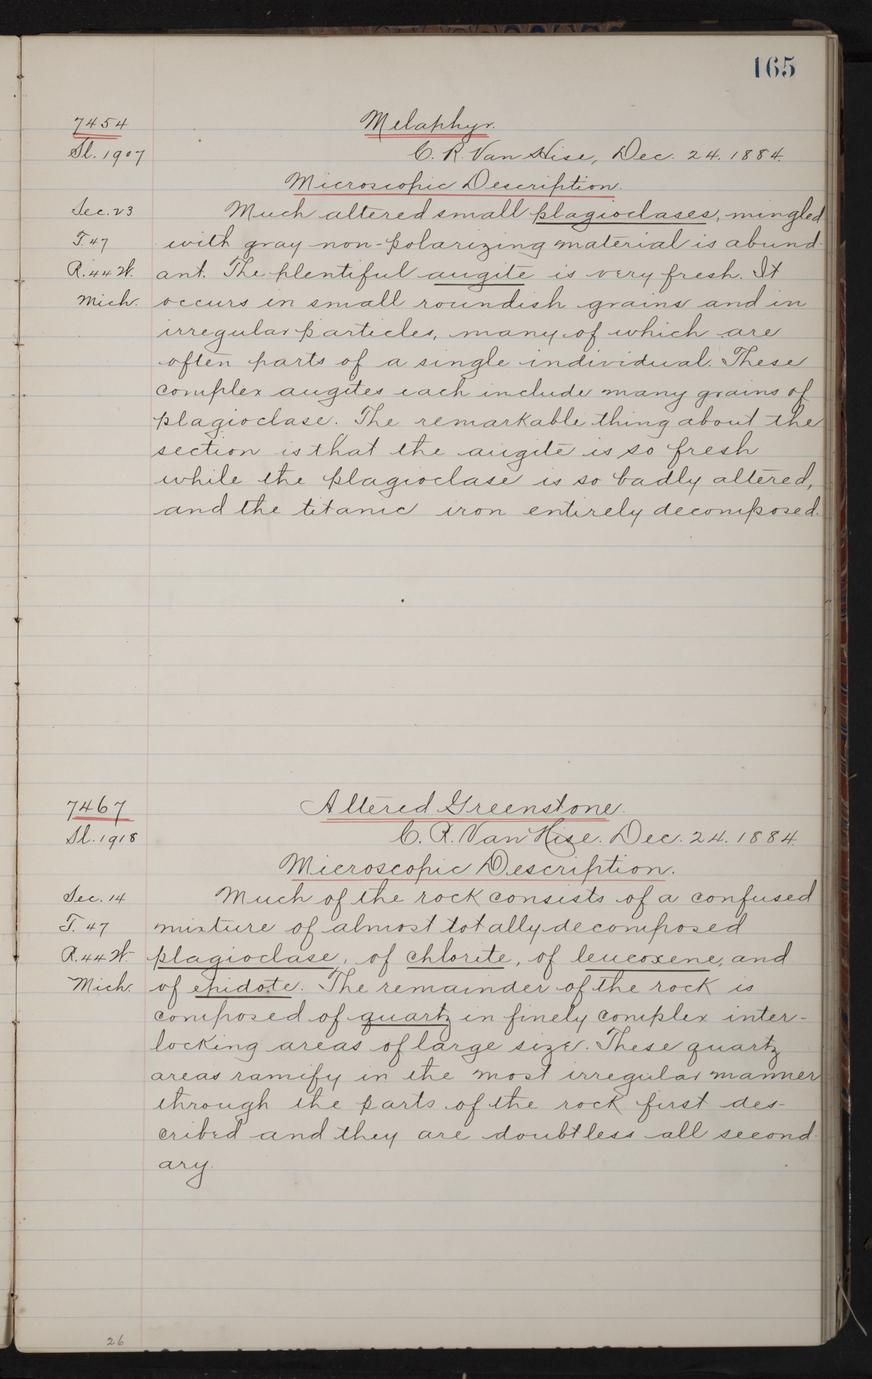 165
7454 Melaphyr.
Sl. 1907 C. R. Van Hise, Dec. 24. 1884.
Microscopic Description.
Sec. 23 Much altered small plagioclases, mingled
T. 47 with gray non-polarizing material is abund-
R. 44 W. ant. The plentiful augite is very fresh. It
Mich. occurs in small roundish grains and in
irregular particles, many of which are
often parts of a single individual. These
complex augites each include many grains of
plagioclase. The remarkable thing about the
section is that the augite is so fresh
while the plagioclase is so badly altered,
and the titanic iron entirely decomposed.
7467 Altered Greenstone.
Sl. 1918 C. R. Van Hise. Dec. 24. 1884.
Microscopic Description.
Sec. 14 Much of the rock consists of a confused
T. 47 mixture of almost totally decomposed
R. 44 W. plagioclase, of chlorite, of leucoxene, and
Mich. of epidote. The remainder of the rock is
composed of quartz in finely complex inter-
locking areas of large size. These quartz
areas ramify in the most irregular manner
through the parts of the rock first des-
cribed and they are doubtless all second-
ary.
26